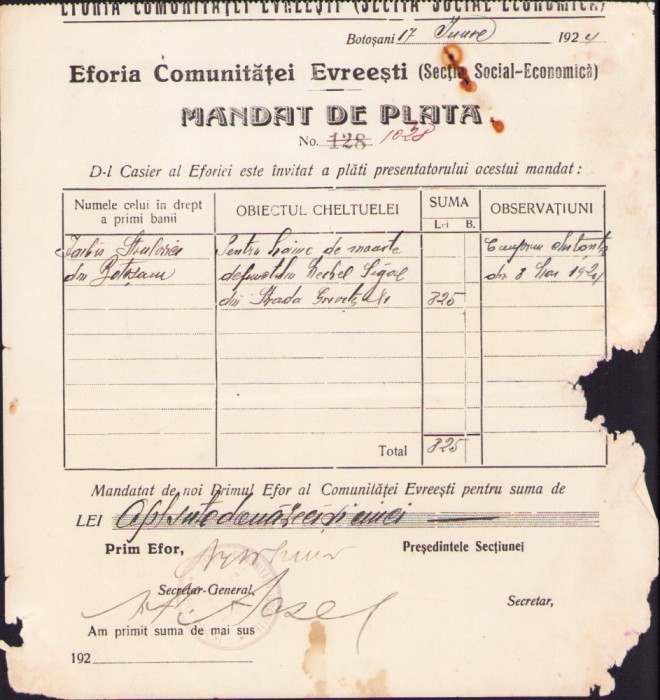 EFORIA COMUNITĂȚEI EVREEȘTI (SECȚIA SOCIAL ECONOMICĂ)
Botoșani 17 Iunie 1924
Eforia Comunităței Evreești (Secția Social-Economică)
MANDAT DE PLATA
No. 128 1028
D-l Casier al Eforiei este învitat a plăti presentatorului acestui mandat :
Numele celui în drept a primi banii
OBIECTUL CHELTUELEI
SUMA
Lei B.
OBSERVAȚIUNI
Pentru haine de moarte
din Botoșani
defunctului Herhel Sigal
din Strada
825
din 8 Mai 1924
Total 825
Mandatat de noi Primul Efor al Comunităței Evreești pentru suma de
LEI Opt sute două zeci și cinci
Prim Efor,
Președintele Secțiunei
Secretar-General,
Secretar,
Am primit suma de mai sus
192